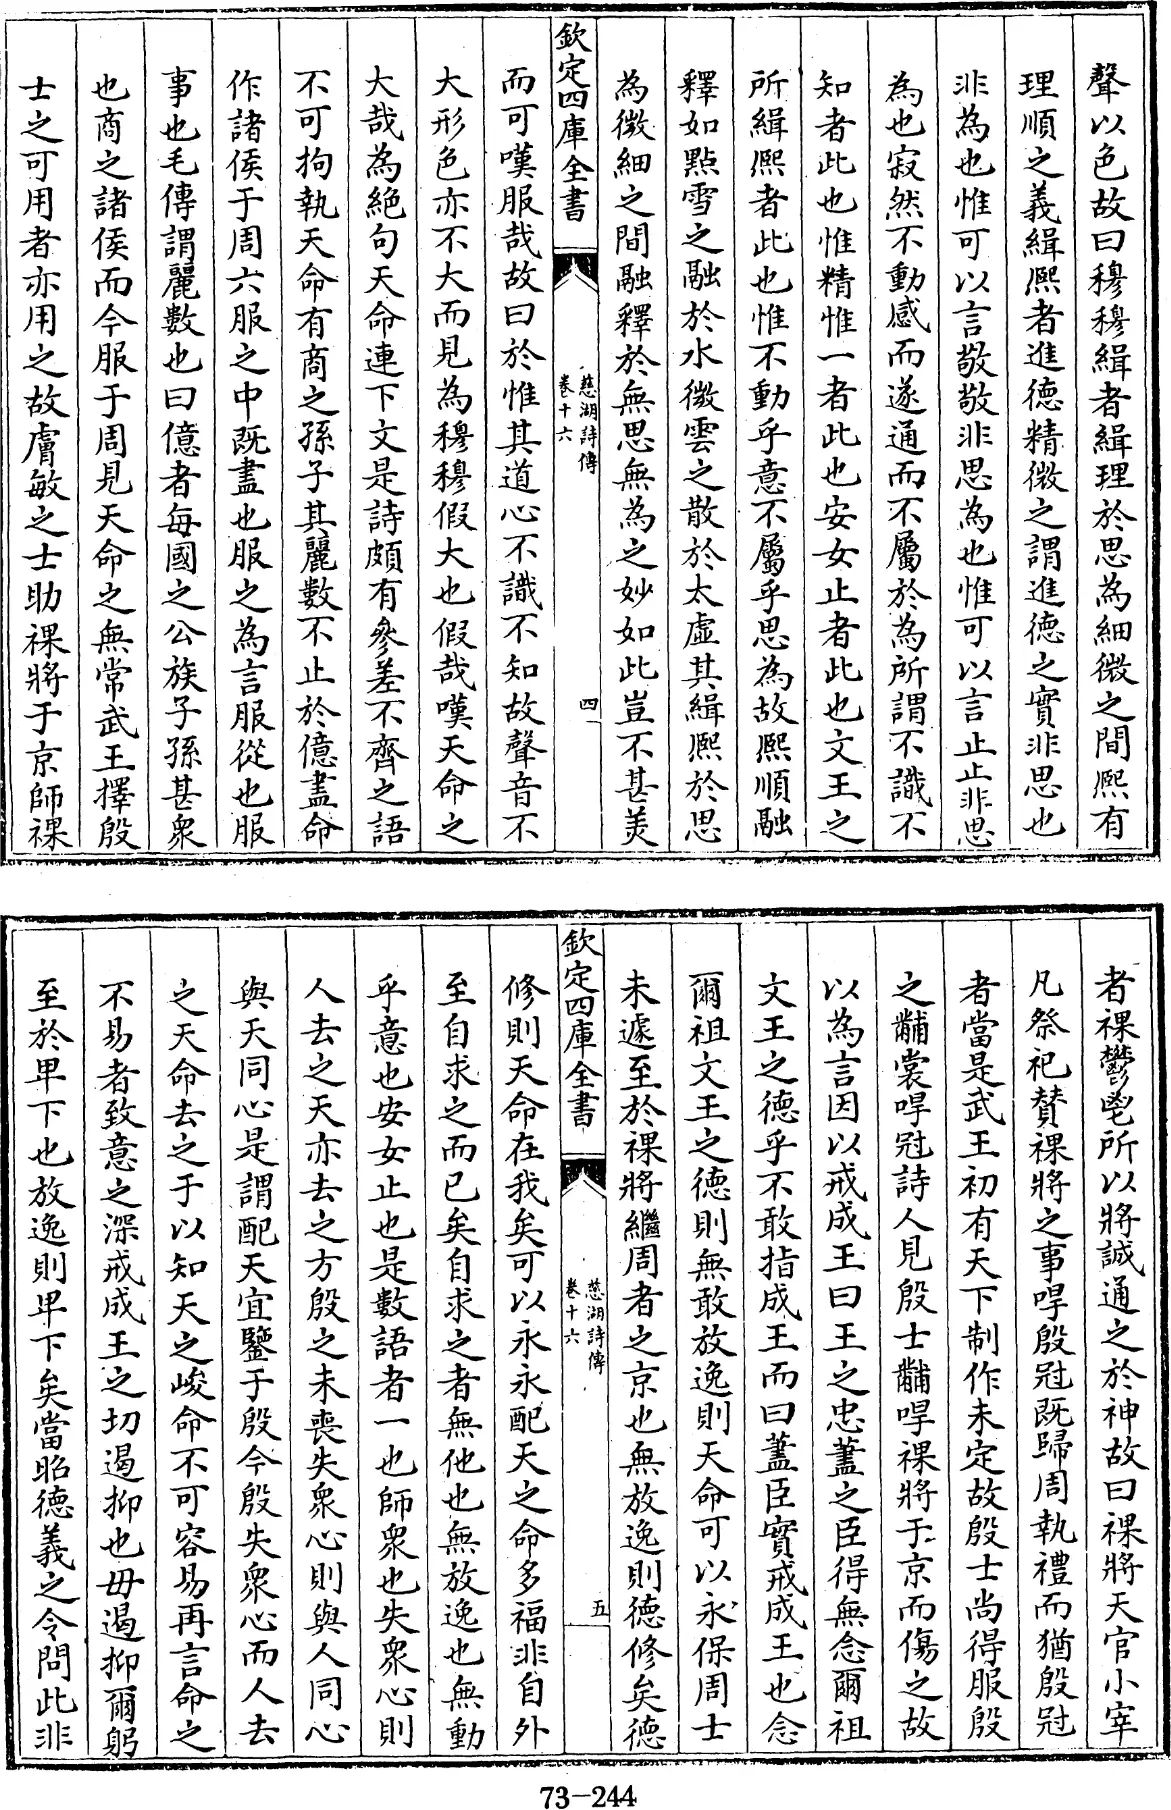 聲以色故曰穆穆緝者緝理於思為細微之間熈有
理順之義緝熈者進德精微之謂進德之實非思也
非為也惟可以言敬敬非思為也惟可以言止止非思
為也寂然不動感而遂通而不屬於為所謂不識不
知者此也惟精惟一者此也安女止者此也文王之
所緝熈者此也惟不動乎意不屬乎思為故熈順融
釋如點雪之融於水微雲之散於太虛其緝熈於思
為微細之間融釋於無思無為之妙如此豈不甚美
欽定四庫全書
慈湖詩傳
卷十六
四
而可嘆服哉故曰於惟其道心不識不知故聲音不
大形色亦不大而見為穆穆假大也假哉嘆天命之
大哉為絕句天命連下文是詩頗有參差不齊之語
不可拘執天命有商之孫子其麗數不止於億盡命
作諸侯于周六服之中既盡也服之為言服從也服
事也毛傳謂麗數也曰億者每國之公族子孫甚衆
也商之諸侯而今服于周見天命之無常武王擇殷
士之可用者亦用之故膚敏之士助祼將于京師祼
者祼鬱鬯所以將誠通之於神故曰祼將天官小宰
凡祭祀贊祼將之事冔殷冠既歸周執禮而猶殷冠
者當是武王初有天下制作未定故殷士尚得服殷
之黼裳冔冠詩人見殷士黼冔祼將于京而傷之故
以為言因以戒成王曰王之忠藎之臣得無念爾祖
文王之德乎不敢指成王而曰藎臣實戒成王也念
爾祖文王之德則無敢放逸則天命可以永保周士
未遽至於祼將繼周者之京也無放逸則德修矣德
欽定四庫全書
慈湖詩傳
卷十六
五
修則天命在我矣可以永永配天之命多福非自外
至自求之而已矣自求之者無他也無放逸也無動
乎意也安女止也是數語者一也師衆也失衆心則
人去之天亦去之方殷之未喪失衆心則與人同心
與天同心是謂配天宜鑒于殷今殷失衆心而人去
之天命去之于以知天之峻命不可容易再言命之
不易者致意之深戒成王之切遏抑也毋遏抑爾躬
至於卑下也放逸則卑下矣當昭德義之令問此非
73-244